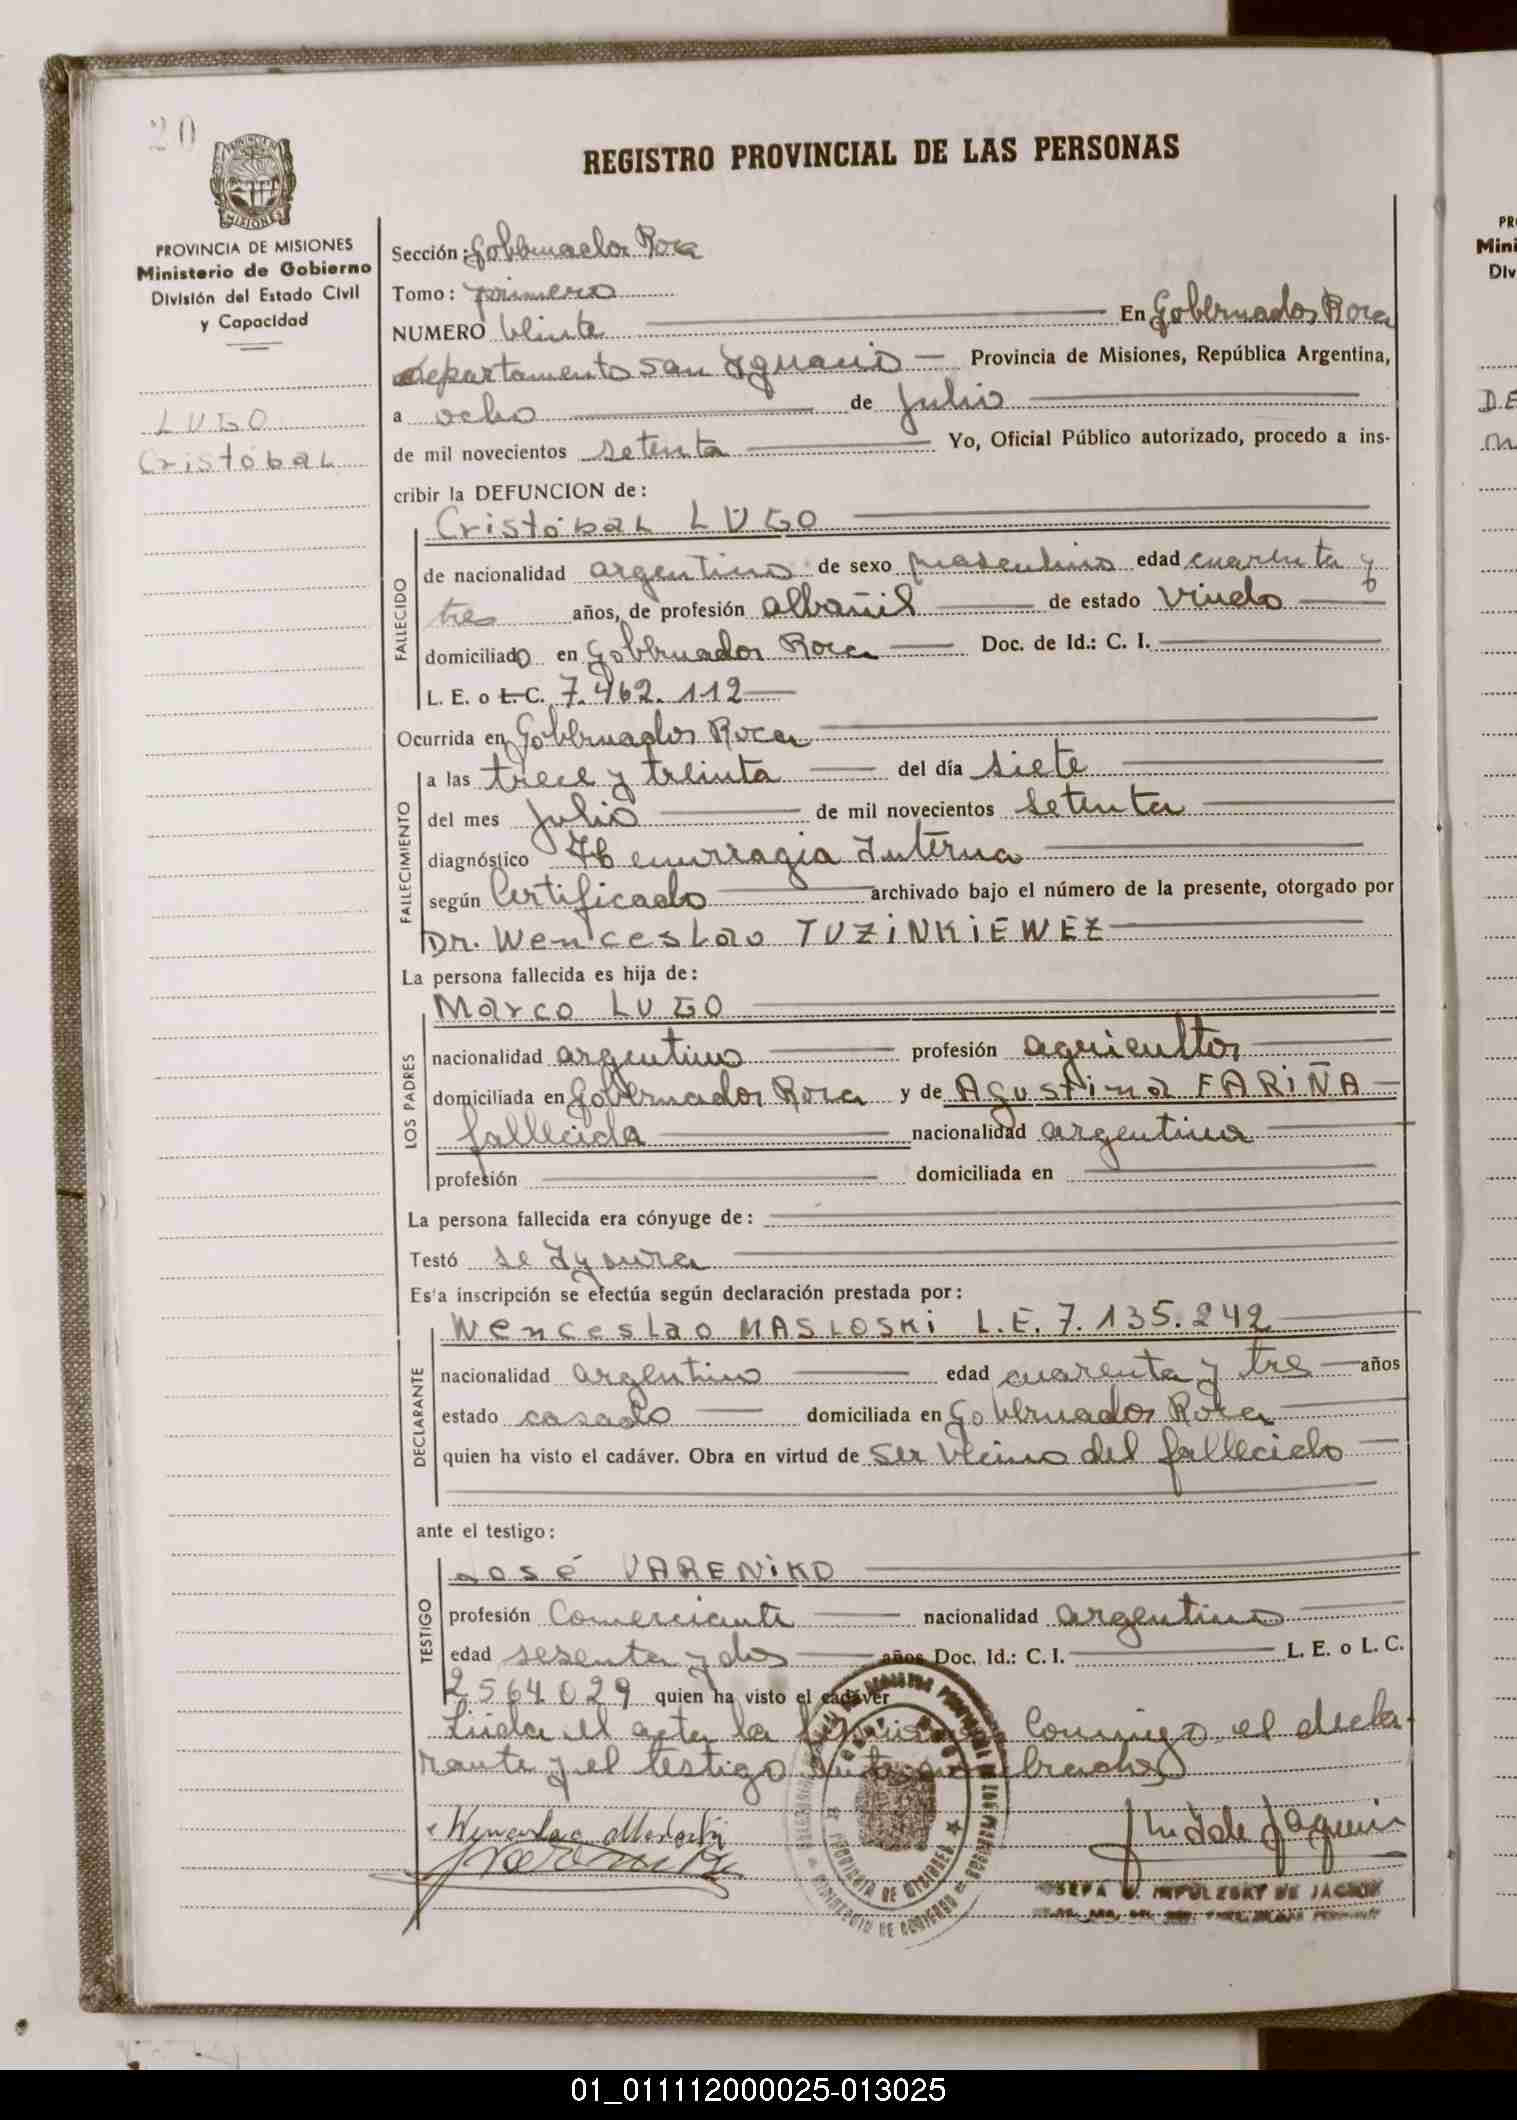 20
REGISTRO PROVINCIAL DE LAS PERSONAS
PROVINCIA DE MISIONES
Ministerio de Gobierno
División del Estado Civil
y Capacidad
LUGO
Cristóbal
Sección: Gobernador Roca
Tomo: primero
NUMERO Veinte En Gobernador Roca
departamento San Ignacio Provincia de Misiones, República Argentina,
a ocho de Julio
de mil novecientos setenta Yo, Oficial Público autorizado, procedo a ins-
cribir la DEFUNCION de:
Cristóbal LUGO
FALLECIDO
de nacionalidad argentino de sexo masculino edad cuarenta y
tres años, de profesión albañil de estado Viudo
domiciliado en Gobernador Roca Doc. de Id.: C. I.
L. E. o L. C. 7.462.112
Ocurrida en Gobernador Roca
FALLECIMIENTO
a las trece y treinta del día siete
del mes Julio de mil novecientos setenta
diagnóstico Hemorragia Interna
según Certificado archivado bajo el número de la presente, otorgado por
Dr. Wenceslao TUZiNKiEWEZ
La persona fallecida es hija de:
LOS PADRES
Marco LUGO
nacionalidad argentino profesión agricultor
domiciliada en Gobernador Roca y de Agustina FARiÑA
fallecida nacionalidad argentina
profesión domiciliada en
La persona fallecida era cónyuge de:
Testó se Ygnora
Esta inscripción se efectúa según declaración prestada por:
DECLARANTE
Wenceslao MASLOSKi L.E. 7.135.242
nacionalidad argentino edad cuarenta y tre años
estado casado domiciliada en Gobernador Roca
quien ha visto el cadáver. Obra en virtud de ser vecino del fallecido
ante el testigo:
TESTIGO
José VARENiKO
profesión Comerciante nacionalidad argentino
edad sesenta y dos años Doc. Id.: C. I. L. E. o L. C.
2564029 quien ha visto el cadáver
Leída el acta la firman Conmigo el decla-
rante y el testigo
PROVINCIA DE MISIONES
MINISTERIO DE GOBIERNO
01_011112000025-013025